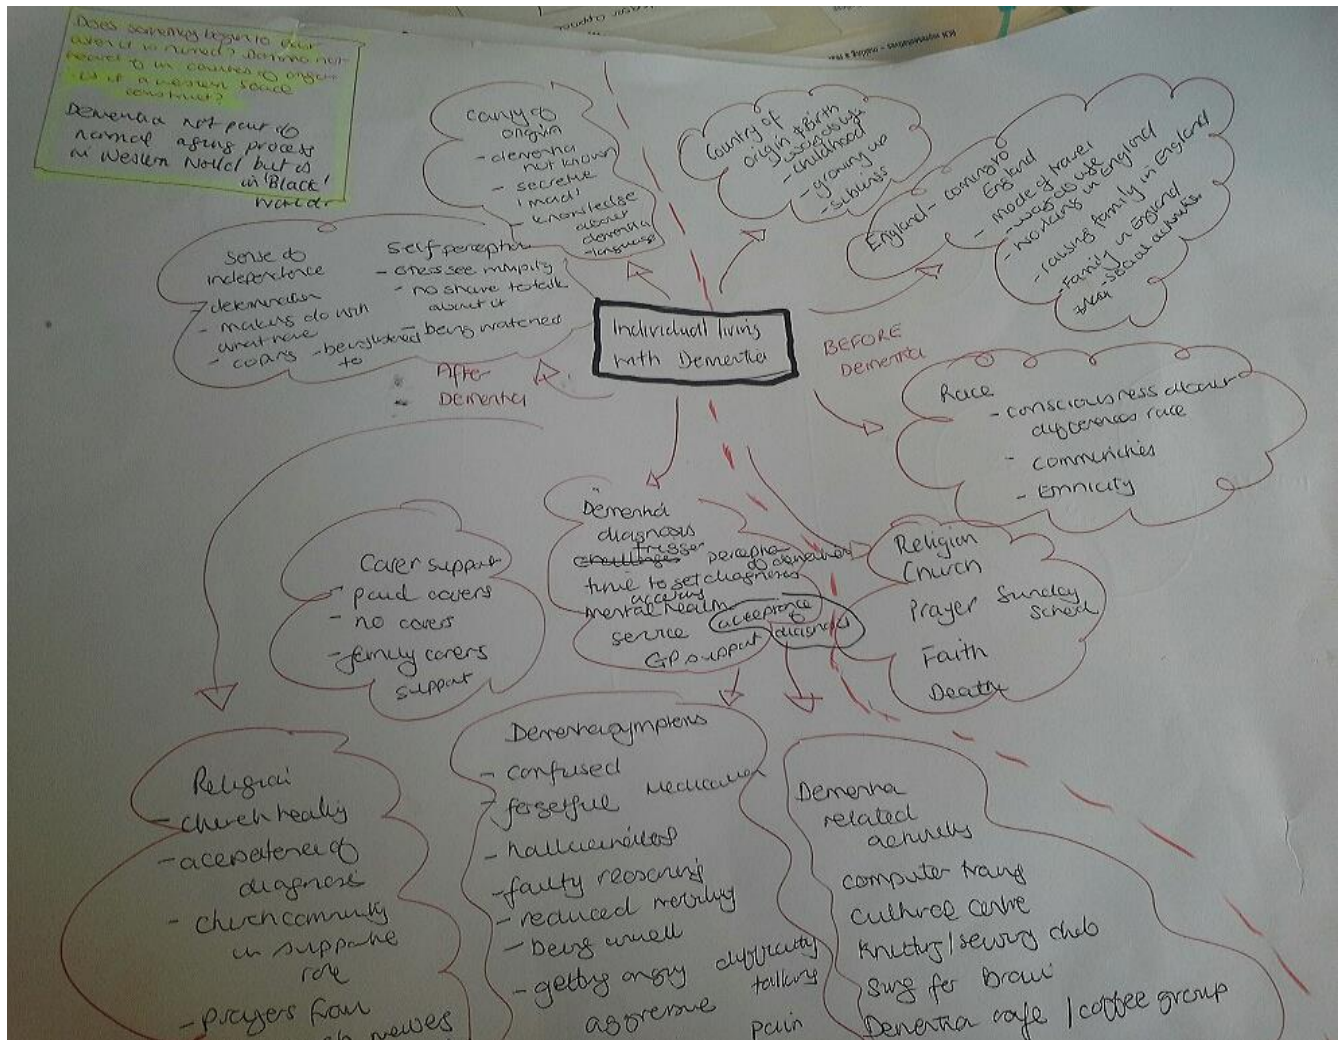 Does something begin to
after it is named?
in countries of origin
Is it a western
construct?
Dementia not part of
normal aging process
in Western World but is
in 'Black'
World
Country of
origin
- dementia
not known
- secretive
'mad'
- knowledge
about
dementia
- language
Country of
origin & Birth
- way of life
- childhood
- growing up
- siblings
England - coming to
England
- mode of travel
- way of life
- working in England
- raising family in England
- Family in England
- social activities
Sense of
independence
- determination
- making do with
what have
- coping
- being listened
to
Self perception
- others see
- no shame to talk
about it
- being watched
Individual living
with Dementia
BEFORE
Dementia
After
Dementia
Race
- consciousness about
differences race
- communities
- Ethnicity
Dementia
diagnosis
trigger
perception
of dementia
time to get diagnosis
accessing
mental health
service
acceptance
of
diagnosis
GP support
Religion
Church
Prayer Sunday
School
Faith
Death
Carer support
- paid carers
- no carers
- family carers
support
Religion
- church healing
- acceptance of
diagnosis
- church community
in supportive
role
- prayers from
Dementia symptoms
- confused
- forgetful Medication
- hallucinations
- faulty reasoning
- reduced mobility
- being unwell
- getting angry difficulty
talking
aggressive
pain
Dementia
related
activities
computer training
Cultural Centre
Knitting/sewing club
Sing for Brain
Dementia cafe / coffee group